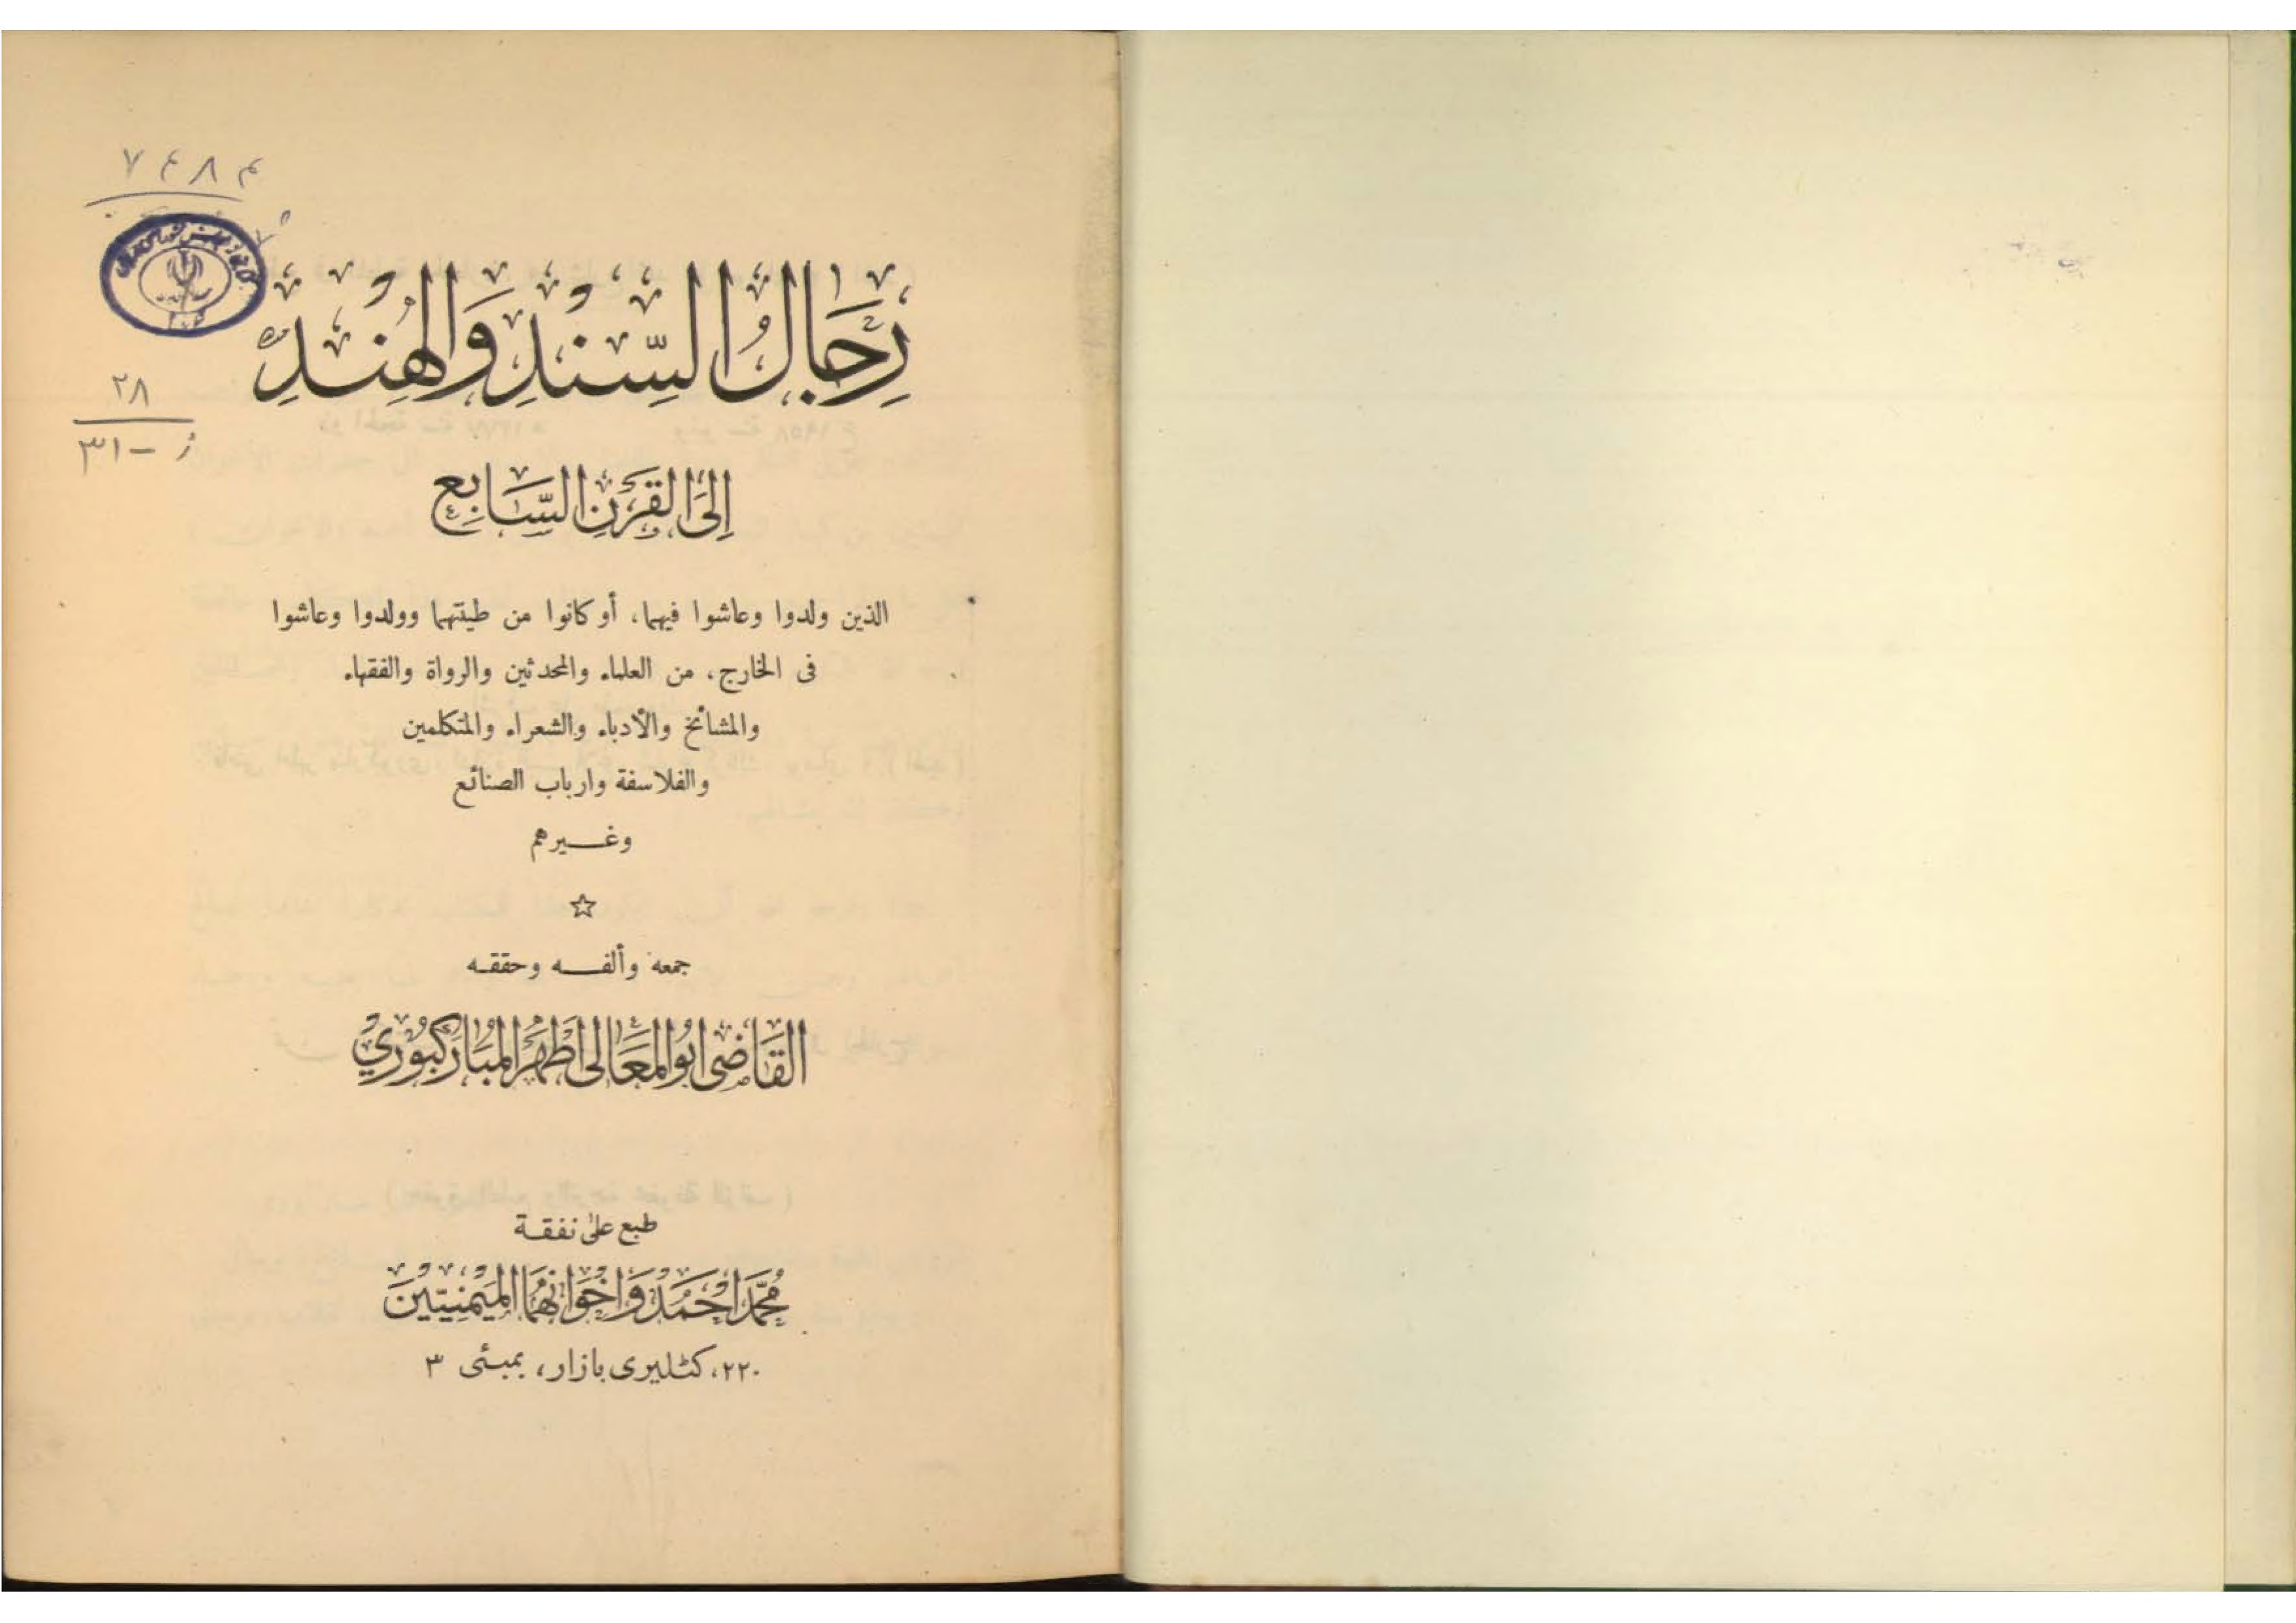 ۷۴۸۴
رِجَالُ السِّنْدِ وَالْهِنْدِ
۲۸
۳۱ - ز
إِلَى الْقَرْنِ السَّابِعِ
الذين ولدوا وعاشوا فيهما، أو كانوا من طينتهما وولدوا وعاشوا
فى الخارج، من العلماء والمحدثين والرواة والفقهاء
والمشائخ والأدباء والشعراء والمتكلمين
والفلاسفة وارباب الصنائع
وغــيرهم
☆
جمعه وألفــه وحققه
القَاضِى ابُو المَعَالِى اَطْهَر المُبَارَكْبُورِيْ
طبع على نفقة
مُحَمَّد اَحْمَدْ وَاِخْوَانُهُمَا المَيْمَنِيِّيْنَ
۲۲۰، كٹليرى بازار، بمبئى ۳